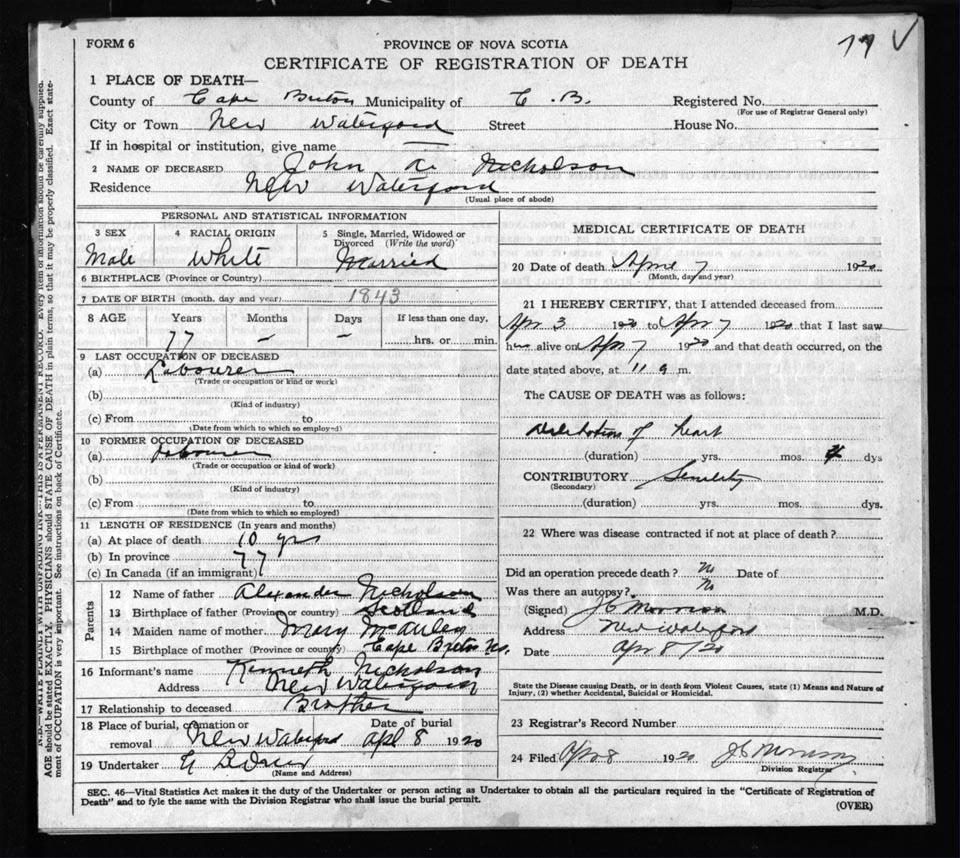 FORM 6
PROVINCE OF NOVA SCOTIA
CERTIFICATE OF REGISTRATION OF DEATH
1 PLACE OF DEATH—
County of Cape Breton Municipality of C.B. Registered No.
(For use of Registrar General only)
City or Town New Waterford Street House No.
If in hospital or institution, give name —
2 NAME OF DECEASED John A. Nicholson
Residence New Waterford
(Usual place of abode)
PERSONAL AND STATISTICAL INFORMATION
3 SEX 4 RACIAL ORIGIN 5 Single, Married, Widowed or Divorced (Write the word)
Male White Married
6 BIRTHPLACE (Province or Country)
7 DATE OF BIRTH (month, day and year) 1843
8 AGE Years Months Days If less than one day,
77 – – hrs. or min.
9 LAST OCCUPATION OF DECEASED
(a) Labourer
(Trade or occupation or kind or work)
(b)
(Kind of industry)
(c) From to
(Date from which to which so employed)
10 FORMER OCCUPATION OF DECEASED
(a) Labourer
(Trade or occupation or kind of work)
(b)
(Kind of industry)
(c) From to
(Date from which to which so employed)
11 LENGTH OF RESIDENCE (In years and months)
(a) At place of death 10 yrs
(b) In province 77
(c) In Canada (if an immigrant)
Parents
12 Name of father Alexander Nicholson
13 Birthplace of father (Province or country) Scotland
14 Maiden name of mother Mary McAuley
15 Birthplace of mother (Province or country) Cape Breton N.S.
16 Informant's name Kenneth Nicholson
Address New Waterford
17 Relationship to deceased Brother
18 Place of burial, cremation or removal New Waterford Date of burial Apl 8 1920
19 Undertaker
(Name and Address)
MEDICAL CERTIFICATE OF DEATH
20 Date of death April 7 1920
(Month, day and year)
21 I HEREBY CERTIFY, that I attended deceased from
Apr 3 1920 to Apr 7 1920 that I last saw
him alive on Apr 7 1920 and that death occurred, on the
date stated above, at 11 a m.
The CAUSE OF DEATH was as follows:
of heart
(duration) yrs. mos. 4 dys
CONTRIBUTORY Senility
(Secondary)
(duration) yrs. mos. dys.
22 Where was disease contracted if not at place of death?
Did an operation precede death? No Date of
Was there an autopsy? No
(Signed) J G Morrison M.D.
Address New Waterford
Date Apr 8/20
State the Disease causing Death, or in death from Violent Causes, state (1) Means and Nature of
Injury, (2) whether Accidental, Suicidal or Homicidal.
23 Registrar's Record Number
24 Filed Apr 8 1920 J G Morrison
Division Registrar
SEC. 46—Vital Statistics Act makes it the duty of the Undertaker or person acting as Undertaker to obtain all the particulars required in the "Certificate of Registration of
Death" and to fyle the same with the Division Registrar who shall issue the burial permit.
(OVER)
N.B.—WRITE PLAINLY WITH UNFADING INK—THIS IS A PERMANENT RECORD. Every item of information should be carefully supplied.
AGE should be stated EXACTLY. PHYSICIANS should STATE CAUSE OF DEATH in plain terms, so that it may be properly classified. Exact state-
ment of OCCUPATION is very important. See instructions on back of Certificate.